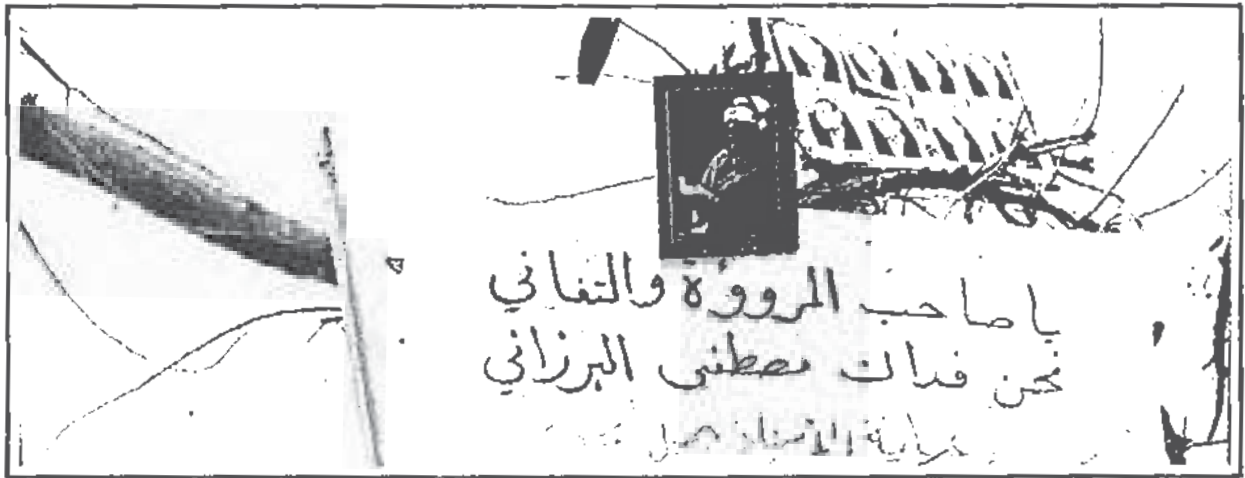 ياصاحب المروؤة والتفاني
نحن فداك مصطفى البرزاني
الأستاذ